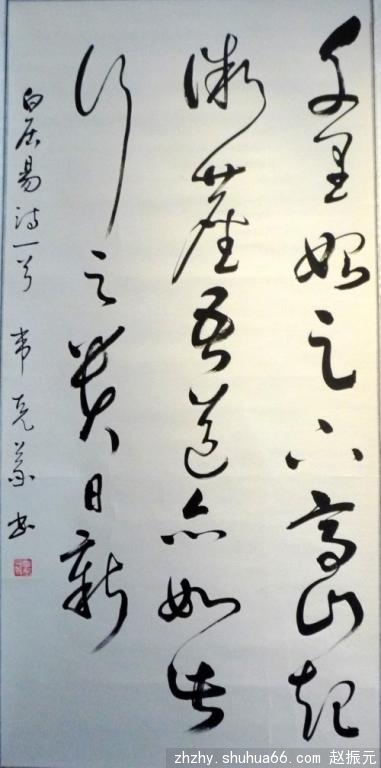 千里始足下高山起
微塵吾道亦如此
行之貴日新
白居易诗一首 书
zhzhy.shuhua66.com 赵振元